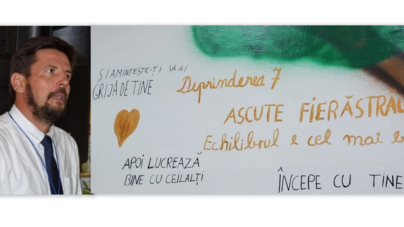 ȘI AMINTEȘTE-ȚI SĂ AI
GRIJĂ DE TINE
Deprinderea 7
ASCUTE
Echilibrul e cel mai
APOI LUCREAZĂ
BINE CU CEILALȚI
ÎNCEPE CU TINE